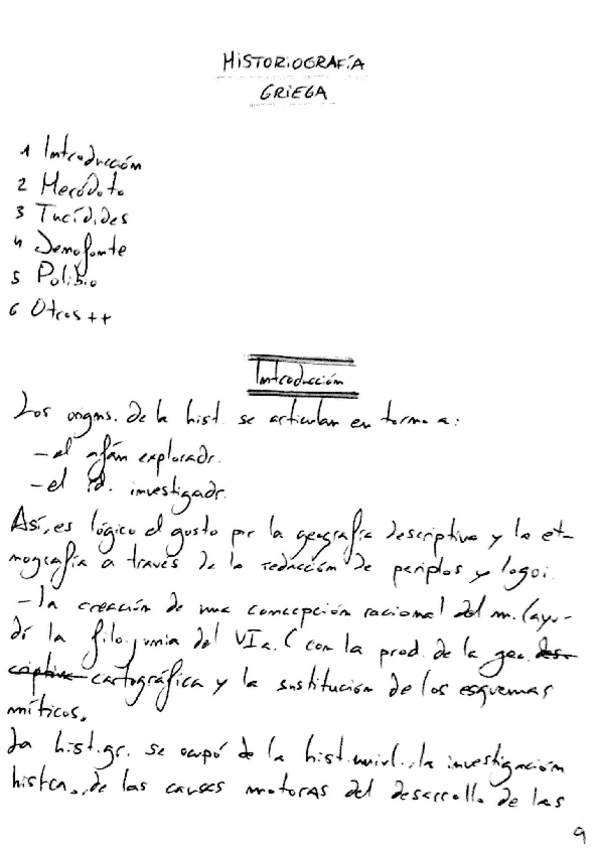 HISTORIOGRAFÍA
GRIEGA
1 Introducción
2 Heródoto
3 Tucídides
4 Jenofonte
5 Polibio
6 Otros ++
Introducción
Los orígns. de la hist. se articulan en torno a:
- el afán exploradr.
- el id. investigadr.
Así, es lógico el gusto por la geografía descriptiva y la et-
nografía a través de la redacción de periplos y logoi.
- la creación de una concepción racional del m. (ayu-
dó la filo. jonia del VI a. C con la prod. de la geo. des-
criptiva cartográfica y la sustitución de los esquemas
míticos.
La hist. gr. se ocupó de la hist. univl., la investigación
histca., de las causas motoras del desarrollo de las
9